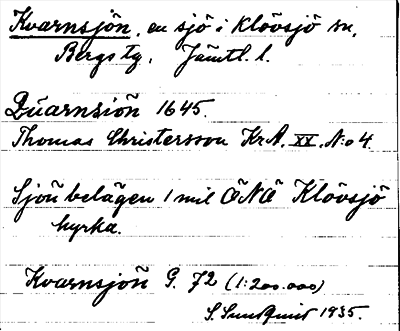 Kvarnsjön, en sjö i Klövsjö sn,
Bergs tg, Jämtl. l.
Quarnsiön 1645.
Thomas Christersson Kr.A. XX. N:o 4.
Sjön belägen 1 mil ÖNÖ Klövsjö
kyrka.
Kvarnsjön G. 72 (1:200.000)
S. Sundquist 1935.